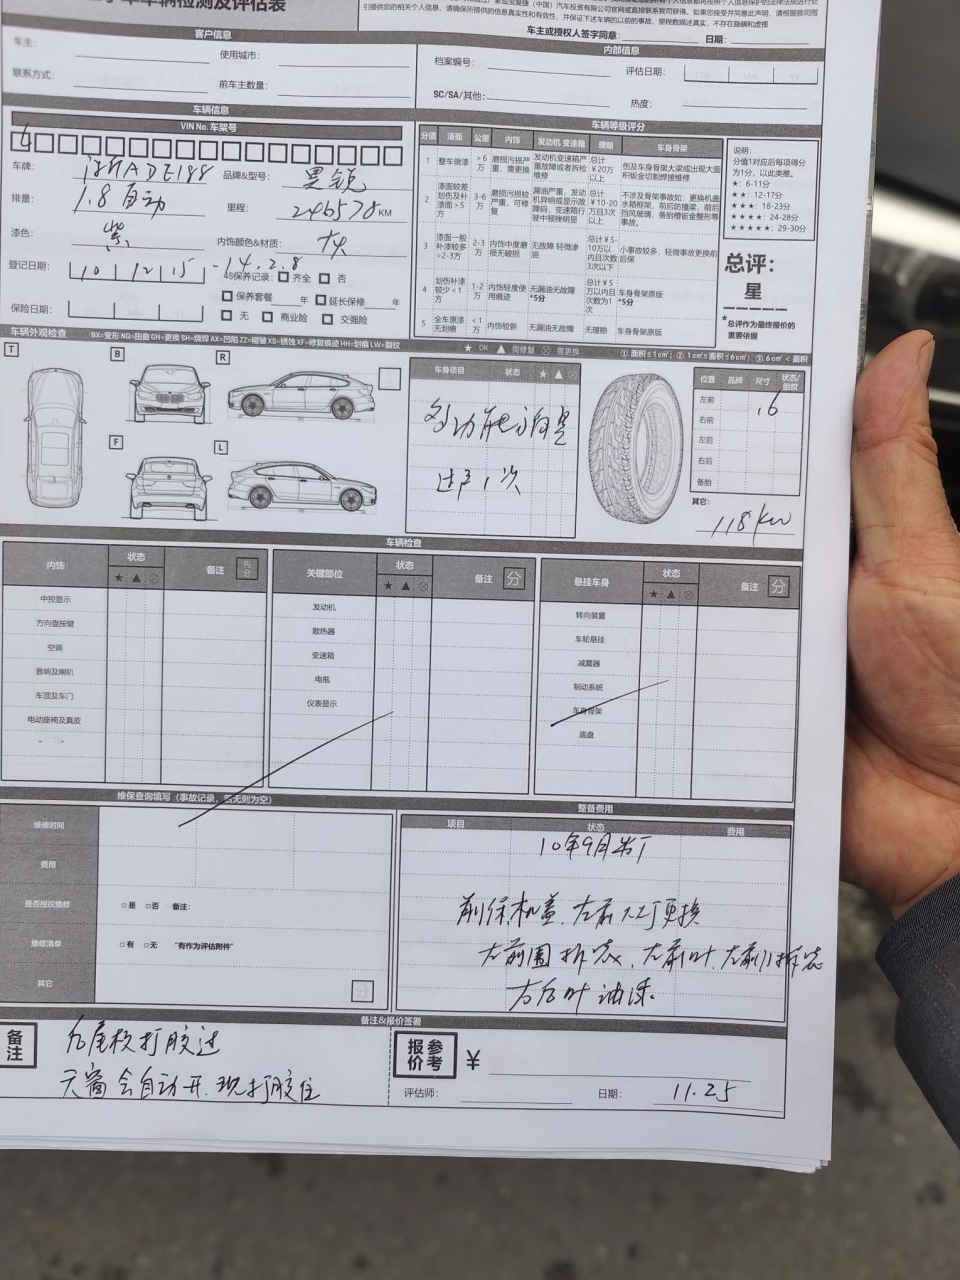 车辆检测及评估表
车主或授权人签字同意:
日期:
客户信息
内部信息
车主:
使用城市:
档案编号:
评估日期:
联系方式:
前车主数量:
SC/SA/其他:
热度:
车辆信息
VIN No. 车架号
车牌:
品牌&型号: 昊锐
排量: 1.8 自动
里程: 246578 KM
漆色: 紫
内饰颜色&材质:
登记日期: 10 12 15 - 14.2.8
4S保养记录: 齐全 否
保养套餐 年 延长保修 年
保险日期:
无 商业险 交强险
车辆等级评分
分值 漆面 公里 内饰 发动机 变速箱 理赔 车身骨架
1 整车做漆 >6万 磨损污损严重，需更换 发动机变速箱严重故障或者拆检维修 总计￥20万以上 伤及车身骨架大梁或出现大面积钣金切割焊接维修
2 漆面较差划伤及补漆面>5方 3-6万 磨损污损较严重，可修复 漏油严重，发动机异响或显示故障码，变速箱行驶中顿挫明显 总计￥10-20万且3次以上 不涉及骨架事故如：更换机盖水箱框架，前后防撞梁，前后挡风玻璃，备胎槽钣金整形等事故。
3 漆面一般补漆较多=2-3方 2-3万 内饰中度磨损无破损 无故障 轻微渗油 总计￥5-10万以内且次数3次以下 小事故较多，轻微事故更换前后保
4 划伤补漆较少<1方 1-2万 内饰轻度使用痕迹 无漏油无故障 *5分 总计￥5万以内且次数为1次 车身骨架原版 *5分
5 全车原漆无划痕 <1万 内饰较新 无漏油无故障 无理赔 车身骨架原版
说明:
分值1对应后每项得分为1分，以此类推。
★: 6-11分
★★: 12-17分
★★★: 18-23分
★★★★: 24-28分
★★★★★: 29-30分
总评:
星
*总评作为最终报价的重要依据
车辆外观检查
BX=变形 NQ=扭曲 GH=更换 SH=烧焊 AX=凹陷 ZZ=褶皱 XS=锈蚀 XF=修复痕迹 HH=划痕 LW=裂纹
★ OK ▲ 需修复 ⊗ 需更换
①. 面积≤1cm²; ②. 1cm²≤面积≤6cm²; ③. 6cm²<面积
T
B
R
F
L
车身项目 状态 ★ ▲ ⊗
多功能方向盘
过户1次
位置 品牌 尺寸 状态/胎纹
左前
右前
左后
右后
备胎
16
其它:
118kw
车辆检查
内饰 状态 ★ ▲ ⊗ 备注 内分
中控显示
方向盘按键
空调
音响及喇叭
车顶及车门
电动座椅及真皮
关键部位 状态 ★ ▲ ⊗ 备注 分
发动机
散热器
变速箱
电瓶
仪表显示
悬挂车身 状态 ★ ▲ ⊗ 备注 分
转向装置
车轮悬挂
减震器
制动系统
车身骨架
底盘
维保查询填写（事故记录，若无则为空）
维修时间
费用
是否授权维修
□是 □否 备注:
维修清单
□有 □无 "有作为评估附件"
其它
分
整备费用
项目 状态 费用
10年9月出厂
前保机盖.左前大灯更换
左前围拆装.左前叶.左前门拆装
右后叶油漆.
备注
后尾板打胶过
天窗会自动开.现打胶住
备注&报价签署
参考报价 ￥
评估师:
日期: 11.25